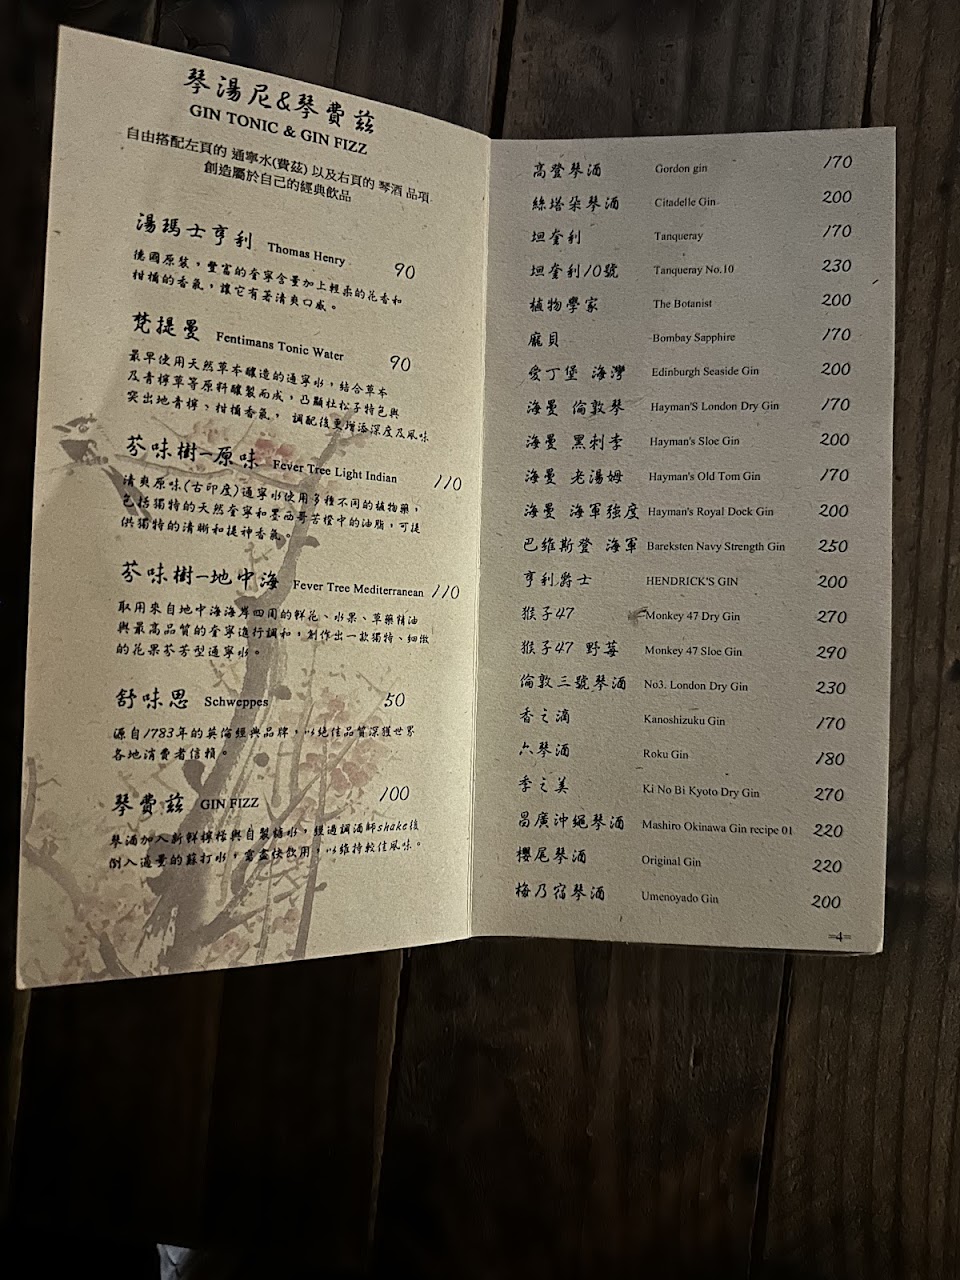 琴湯尼&琴費茲
GIN TONIC & GIN FIZZ
自由搭配左頁的 通寧水(費茲) 以及右頁的 琴酒 品項
創造屬於自己的經典飲品
湯瑪士亨利 Thomas Henry 90
德國原裝，豐富的奎寧含量加上輕柔的花香和
柑橘的香氣，讓它有著清爽口感。
梵提曼 Fentimans Tonic Water 90
最早使用天然草本釀造的通寧水，結合草本
及青檸草等原料釀製而成，凸顯杜松子特色與
突出地青檸、柑橘香氣， 調配後更增添深度及風味
芬味樹-原味 Fever Tree Light Indian 110
清爽原味(古印度)通寧水使用多種不同的植物藥，
包括獨特的天然奎寧和墨西哥苦橙中的油脂，可提
供獨特的清晰和提神香氣。
芬味樹-地中海 Fever Tree Mediterranean 110
取用來自地中海海岸四周的鮮花、水果、草藥精油
與最高品質的奎寧進行調和，創作出一款獨特、細緻
的花果芬芳型通寧水。
舒味思 Schweppes 50
源自1783年的英倫經典品牌，以絕佳品質深獲世界
各地消費者信賴。
琴費茲 GIN FIZZ 100
琴酒加入新鮮檸檬與自製糖水，經過調酒師shake後
倒入適量的蘇打水，需盡快飲用，以維持較佳風味。
高登琴酒 Gordon gin 170
絲塔朵琴酒 Citadelle Gin 200
坦奎利 Tanqueray 170
坦奎利10號 Tanqueray No.10 230
植物學家 The Botanist 200
龐貝 Bombay Sapphire 170
愛丁堡 海灣 Edinburgh Seaside Gin 200
海曼 倫敦琴 Hayman'S London Dry Gin 170
海曼 黑刺李 Hayman's Sloe Gin 200
海曼 老湯姆 Hayman's Old Tom Gin 170
海曼 海軍強度 Hayman's Royal Dock Gin 200
巴維斯登 海軍 Bareksten Navy Strength Gin 250
亨利爵士 HENDRICK'S GIN 200
猴子47 Monkey 47 Dry Gin 270
猴子47 野莓 Monkey 47 Sloe Gin 290
倫敦三號琴酒 No3. London Dry Gin 230
香之滴 Kanoshizuku Gin 170
六琴酒 Roku Gin 180
季之美 Ki No Bi Kyoto Dry Gin 270
昌廣沖繩琴酒 Mashiro Okinawa Gin recipe 01 220
櫻尾琴酒 Original Gin 220
梅乃宿琴酒 Umenoyado Gin 200
=4=